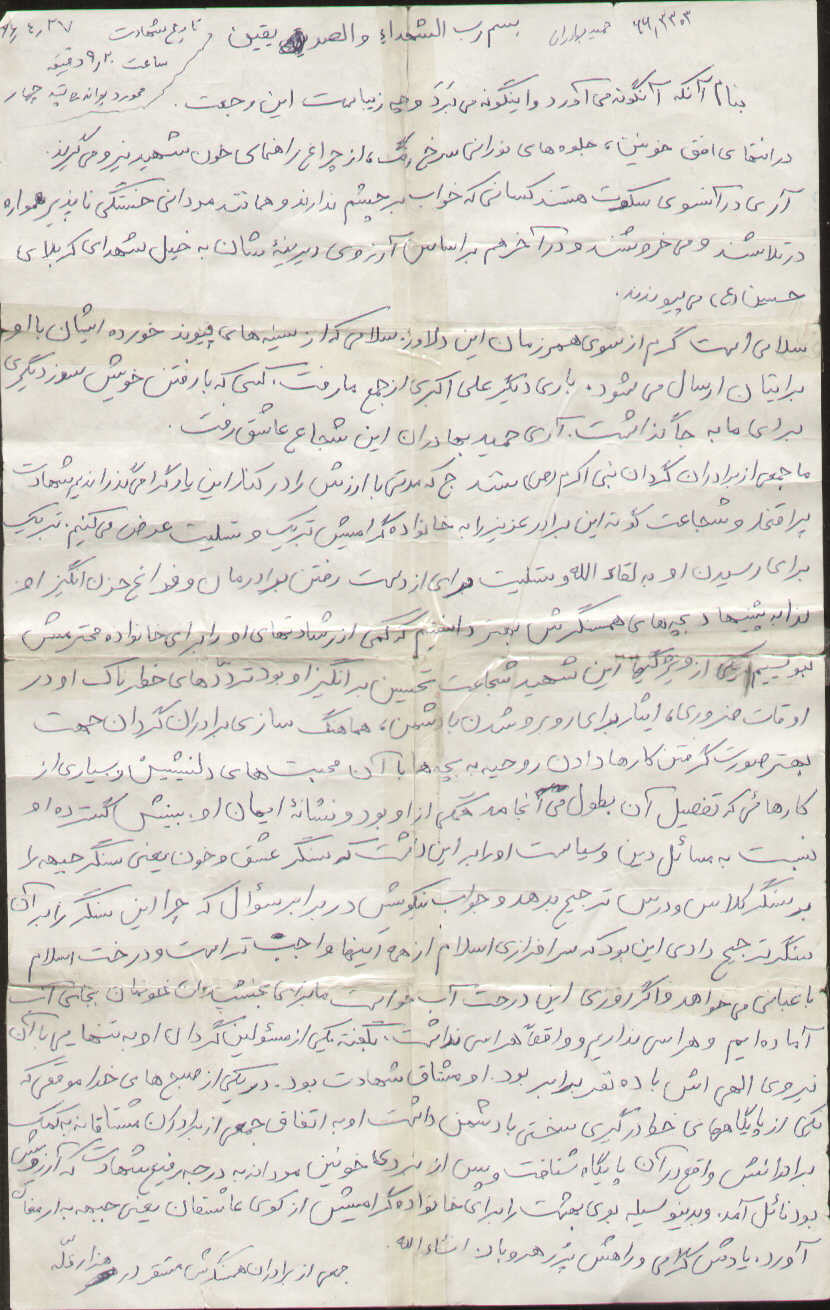 ۶۶,۳۳۰۳ حمید بهادران
بسم رب الشهداء و الصدیقین
تاریخ شهادت ۶۶,۴,۲۷
ساعت ۹٫۲۰ دقیقه
بنام آنکه آنگونه می آورد و اینگونه می بَرَد و چه زیباست این رجعت.
در انتهای افق خونین، جلوه های نورانی سرخ رنگ، از چراغ راهنمای خون شهید نیرو می گیرند.
آری در آنسوی سکوت هستند کسانی که خواب بر چشم ندارند و همانند مردانی خستگی ناپذیر همواره
در تلاشند و می خروشند و در آخر هم بر اساس آرزوی دیرینهٔ شان به خیل شهدای کربلای
حسین (ع) می پیوندند.
سلامی است گرم از سوی همرزمان این دلاور. سلامی که از سینه های پیوند خورده ایشان با او
برایتان ارسال می شود. باری دیگر علی اکبری از جمع ما رفت. کسی که با رفتن خویش سوز دیگری
برای ما به جا گذاشت. آری حمید بهادران این شجاع عاشق رفت.
ما جمعی از برادران گردان نبی اکرم (ص) که مدتی با ارزش را در کنار این یار گرامی گذراندیم شهادت
پر افتخار و شجاعت گونه این برادر عزیز را به خانواده گرامیش تبریک و تسلیت عرض می کنیم. تبریک
برای رسیدن او به لقاء الله و تسلیت برای از دست رفتن برادرمان و فراغ حزن انگیز او.
لذا به پیشنهاد بچه های همسنگرش بهتر دانستیم که کمی از رشادتهای او را برای خانواده محترمش
بنویسیم. یکی از ویژگیهای این شهید شجاعت تحسین برانگیز او بود تردّدهای خطرناک او در
اوقات ضروری، ایثار برای روبرو شدن با دشمن، هماهنگ سازی برادران گردان جهت
بهتر صورت گرفتن کارها دادن روحیه به بچه ها با آن محبت های دلنشینش و بسیاری از
کارهائی که تفصیل آن بطول می انجامد همگی از او بود و نشانهٔ ایمان او. بینش گسترده او
نسبت به مسائل دین و سیاست او را بر این داشت که سنگر عشق و خون یعنی سنگر جبهه را
بر سنگر کلاس و درس ترجیح بدهد و جواب نیکویش در برابر سؤال که چرا این سنگر را بر آن
سنگر ترجیح دادی این بود که سرافرازی اسلام از همه اینها واجب تر است و درخت اسلام
باغبانی می خواهد و اگر روزی این درخت آب خواست ما برای بخشیدن خونمان بجای آب
آماده ایم و هراسی نداریم و واقعاً هراسی نداشت. بگفته یکی از مسئولین گردان او به تنهایی با آن
نیروی الهی اش با ده نفر برابر بود. او مشتاق شهادت بود. در یکی از صبح های خدا موقعی که
یکی از پایگاههای خط درگیری سختی با دشمن داشت او به اتفاق جمعی از برادران مشتاقانه به کمک
برادرانش واقع در آن پایگاه شتافت و پس از نبردی خونین مردانه به درجه رفیع شهادت که آرزویش
بود نائل آمد. و بدینوسیله بوی بهشت را برای خانواده گرامیش از کوی عاشقان یعنی جبهه به ارمغان
آورد. یادش گرامی و راهش پُر رهرو باد. انشاء الله.
جمعی از برادران همسنگرش مستقر در هزار قلّه